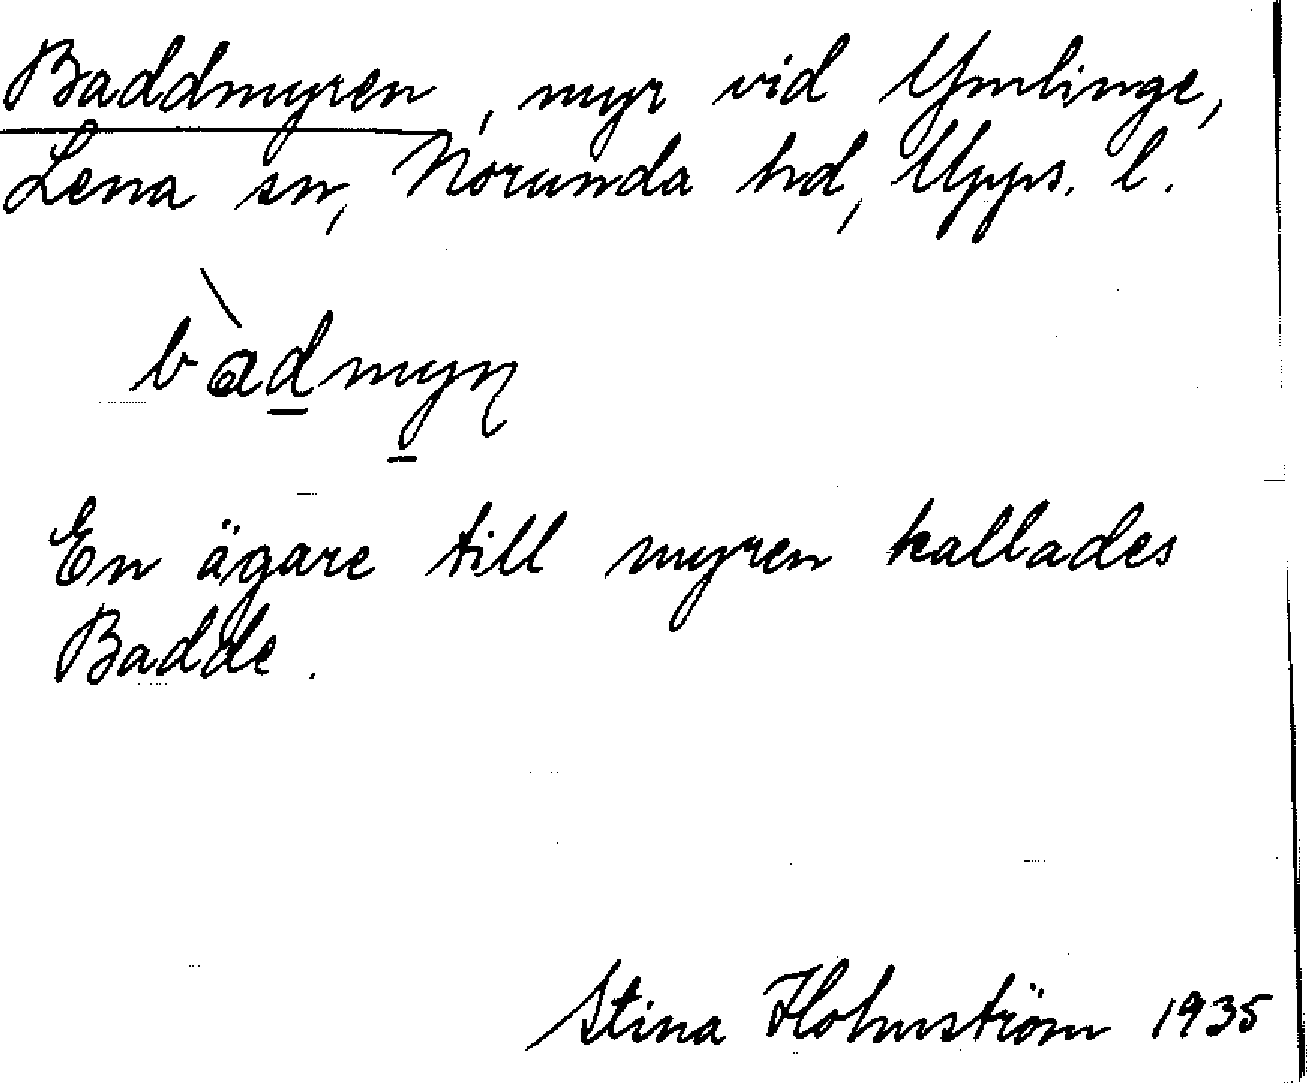 Baddmyren, myr vid Ymlinge,
Lena sn, Norunda hd, Upps. l.
bàdmyṇ
En ägare till myren kallades
Badde.
Stina Holmström 1935